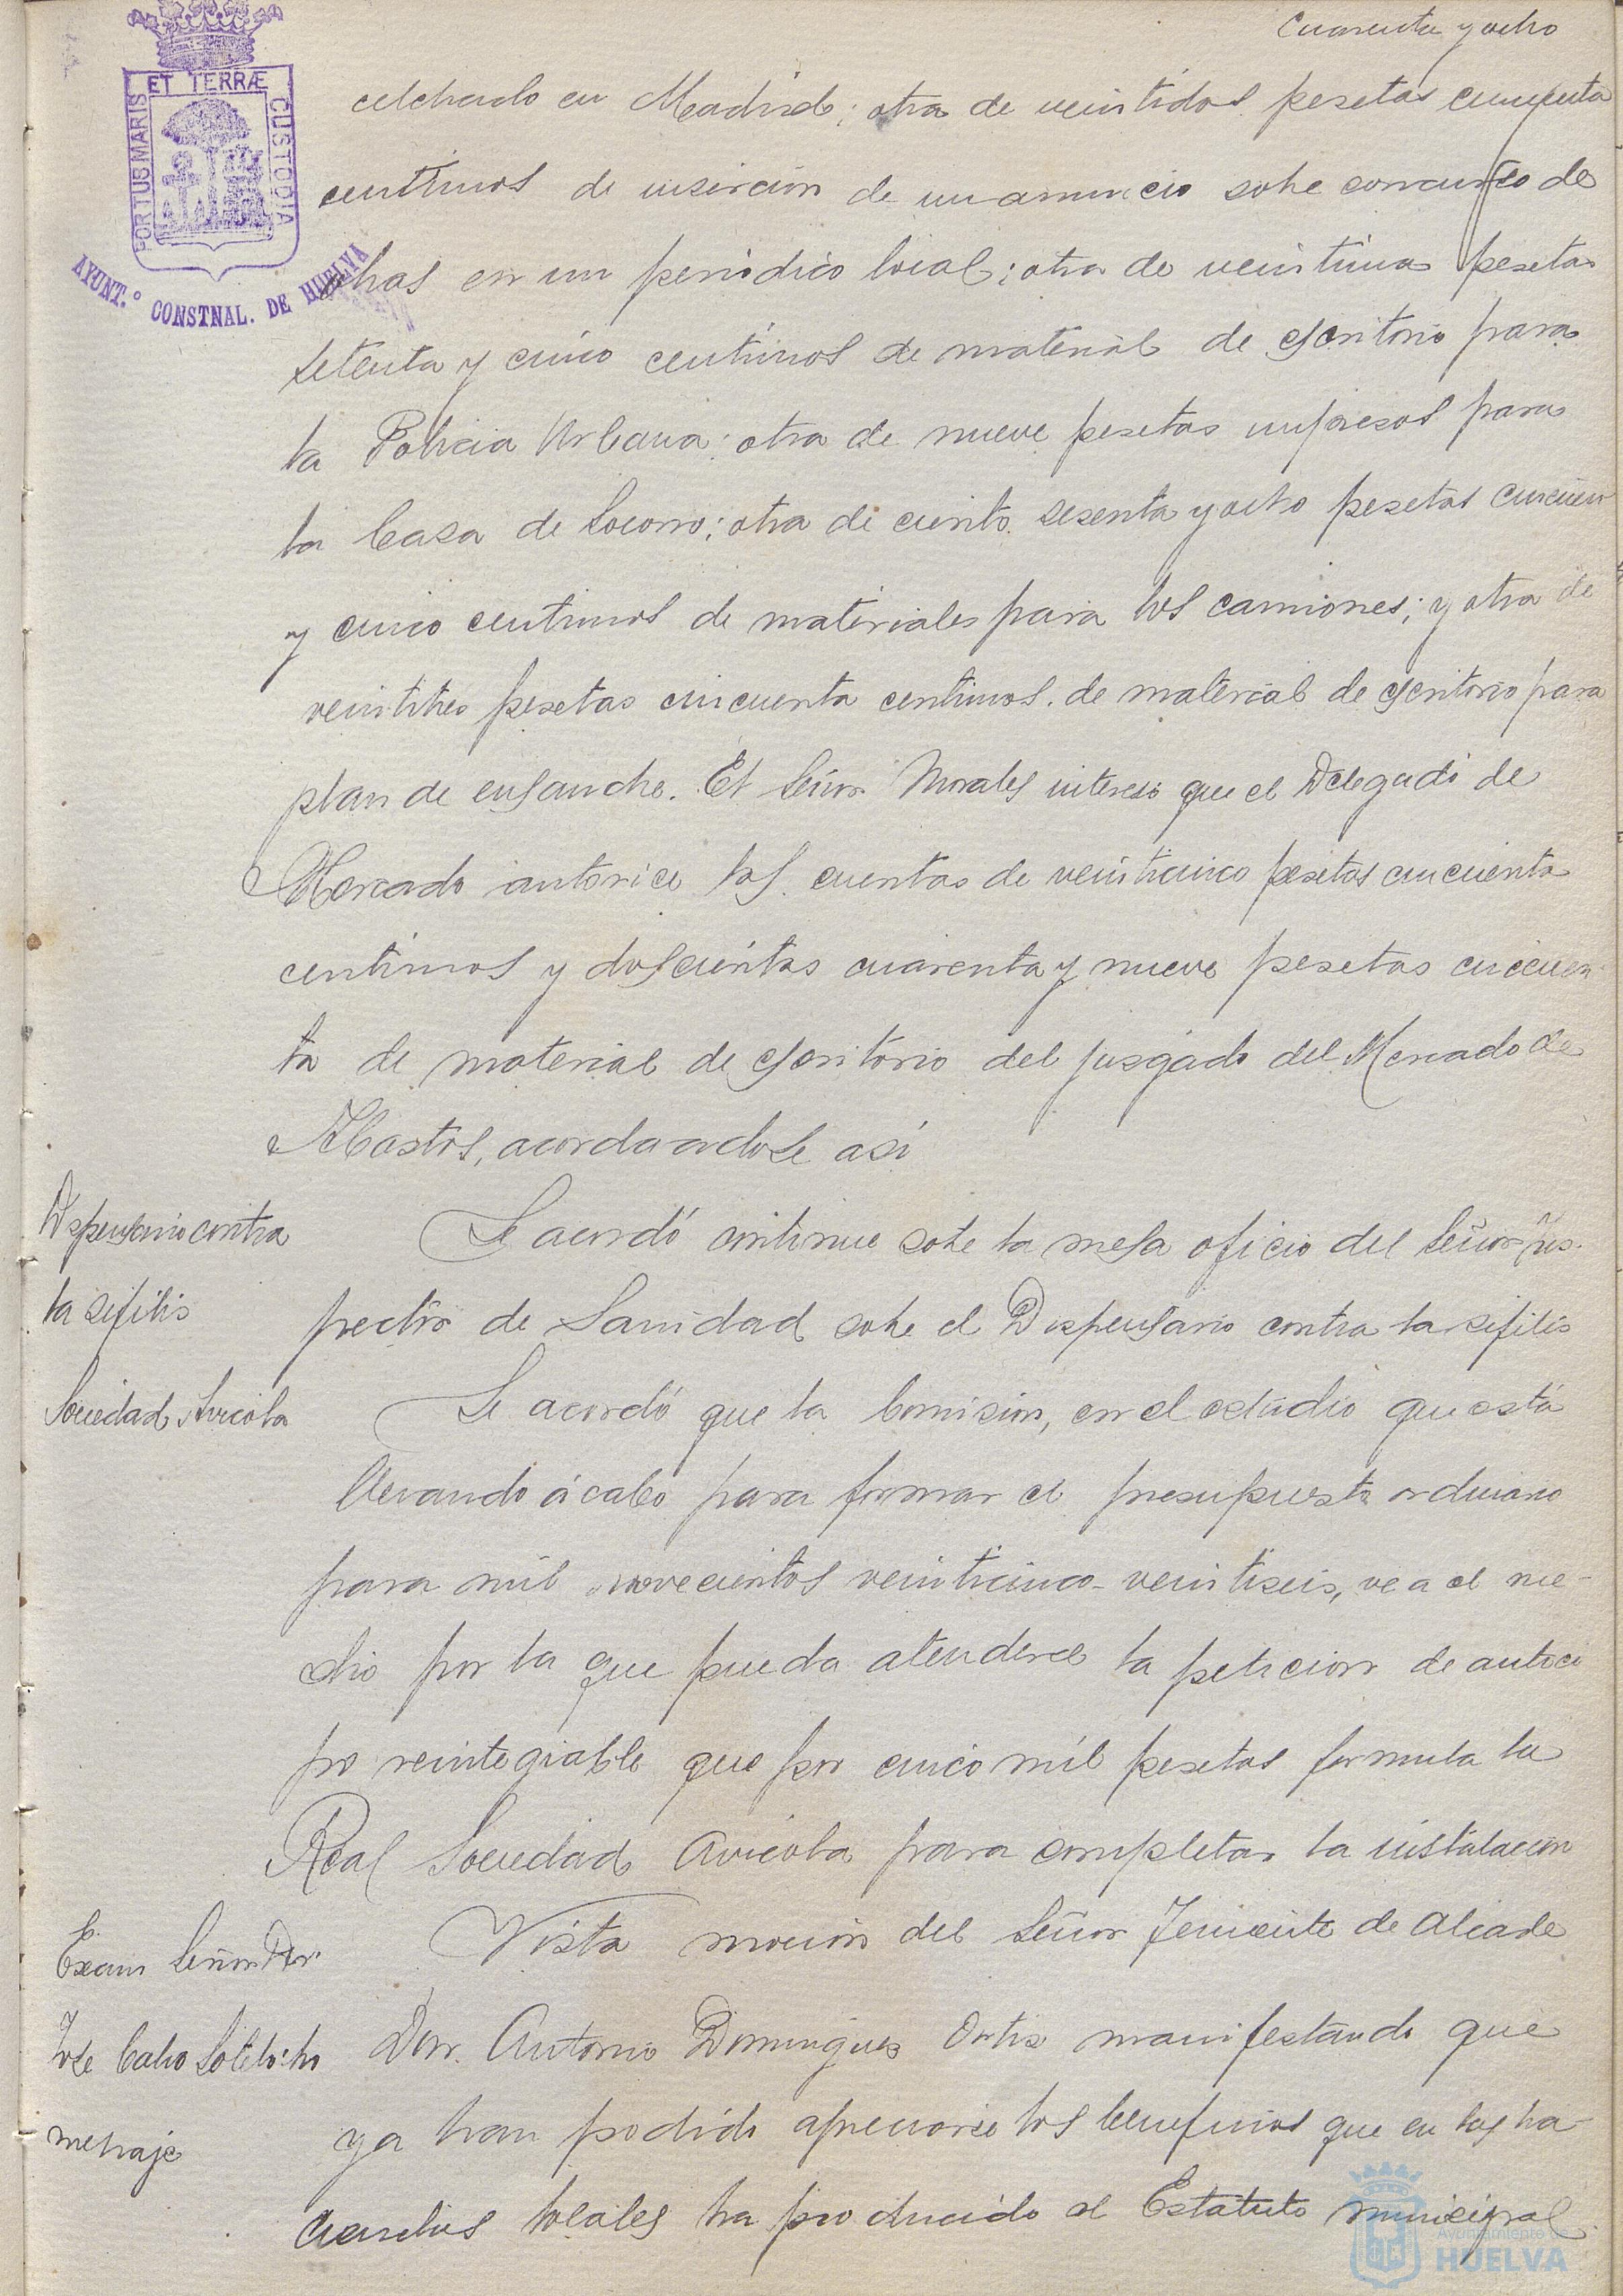 Cuarenta y ocho
PORTUS MARIS ET TERRÆ CUSTODIA
AYUNT.º CONSTNAL. DE HUELVA
celebrado en Madrid; otra de veintidos pesetas cincuenta
centimos de insercion de un anuncio sobre concurso de
obras en un periodico local; otra de veintiuna pesetas
setenta y cinco centimos de material de escritorio para
la Policia Urbana; otra de nueve pesetas impresos para
la Casa de Socorro; otra de ciento sesenta y ocho pesetas cincuen
y cinco centimos de materiales para los camiones; y otra de
veintitres pesetas cincuenta centimos de material de escritorio para
plan de ensanche. El Señor Morales intereso que el Delegado de
Mercado autorice las cuentas de veinticinco pesetas cincuenta
centimos y doscientas cuarenta y nueve pesetas cincuen-
ta de material de escritorio del juzgado del Mercado de
Abastos, acordandose asi
Dispensario contra
la sifilis
Se acordó continue sobre la mesa oficio del Señor Ins-
pector de Sanidad sobre el Dispensario contra la sifilis
Sociedad Avicola
Se acordó que la Comision, en el estudio que está
llevando á cabo para formar el presupuesto ordinario
para mil novecientos veinticinco-veintiseis, vea el me-
dio por la que pueda atenderse la peticion de antici
po reintegrable que por cinco mil pesetas formula la
Real Sociedad Avicola para completar la instalacion
Excmo Señor Don
José Calvo Sotelo: ho
menaje
Vista mocion del Señor Teniente de Alcade
Don Antonio Dominguez Ortiz manifestando que
ya han podido apreciarse los beneficios que en las ha-
ciendas locales ha producido el Estatuto municipal
Ayuntamiento de
HUELVA